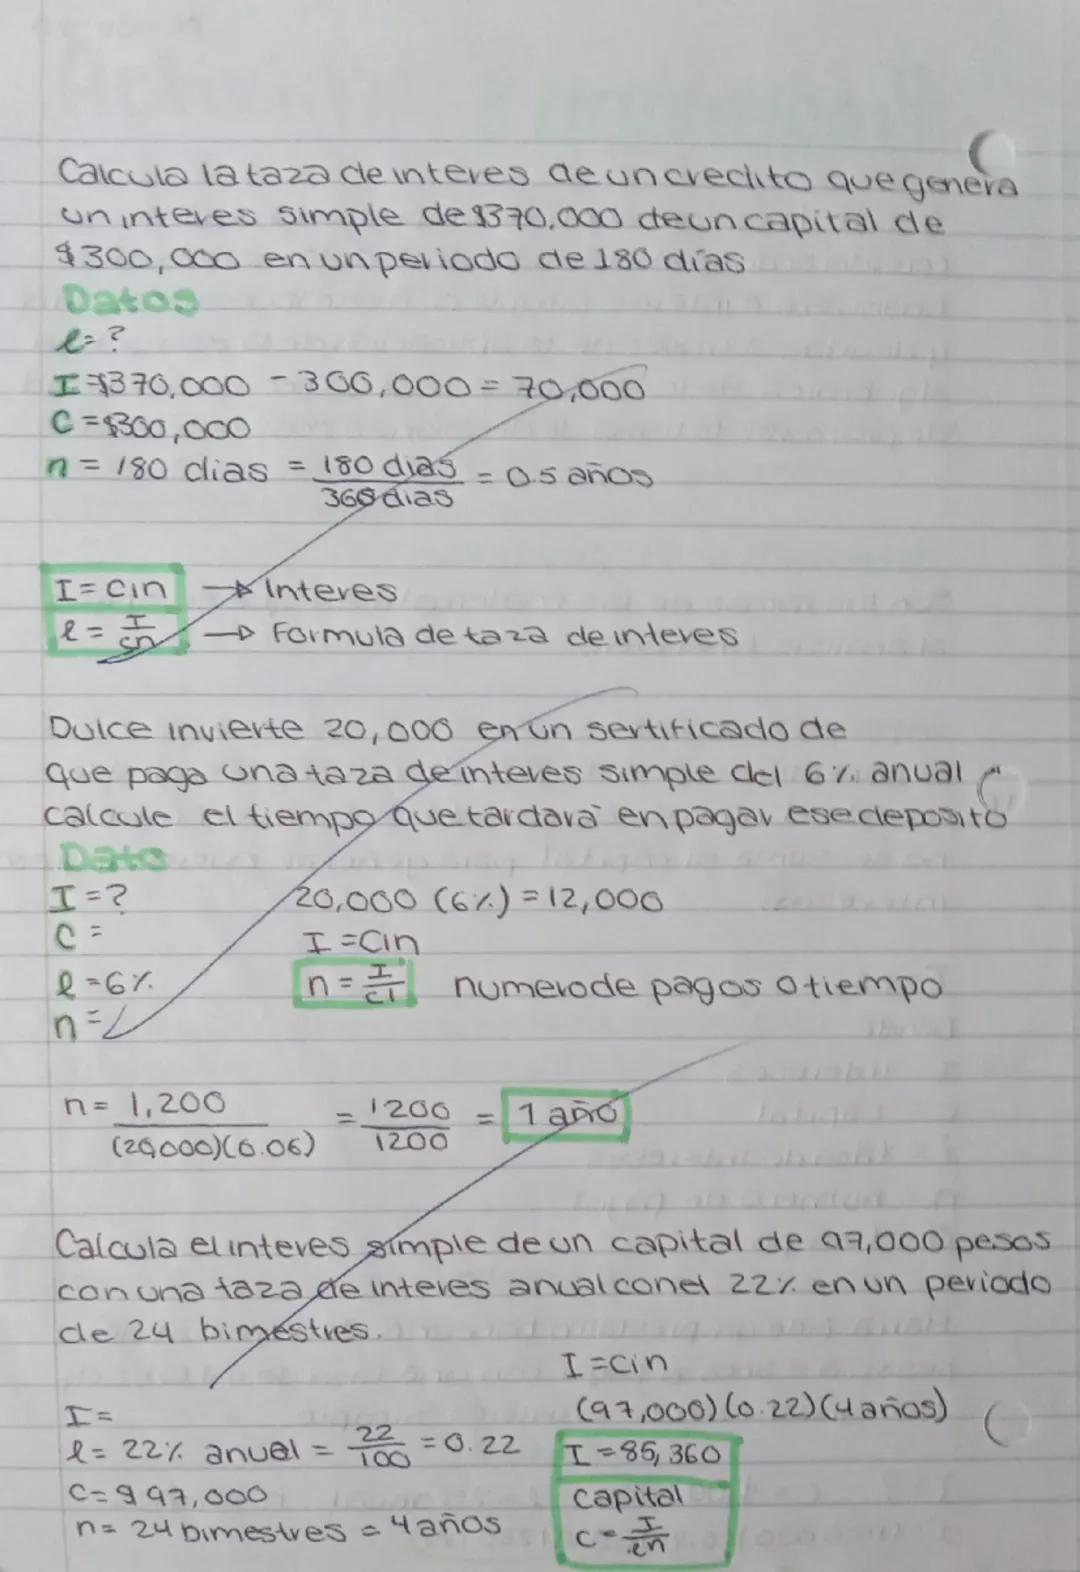 Calcula la taza de interes de un credito que genera
un interes simple de $370,000 de un capital de
$300,000 en un periodo de 180 días
Datos
i= ?
I=$370,000 - 300,000 = 70,000
C =$300,000
n = 180 dias = 180 dias / 360 dias = 0.5 años
I= Cin → Interes
i = I/cn → Formula de taza de interes
Dulce invierte 20,000 en un sertificado de
que paga una taza de interes simple del 6% anual
calcule el tiempo que tardará en pagar ese deposito
Dato
I =? 20,000 (6%) = 12,000
C = I =Cin
i =6% n = I/ci numero de pagos o tiempo
n =
n= 1,200 / (20,000)(0.06) = 1200/1200 = 1 año
Calcula el interes simple de un capital de 97,000 pesos
con una taza de interes anual con el 22% en un periodo
de 24 bimestres.
I =Cin
I = (97,000)(0.22)(4 años)
i= 22% anual = 22/100 = 0.22 I =85,360
C= $97,000 Capital
n= 24 bimestres = 4 años C = I/in